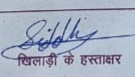 Siddhi
खिलाड़ी के हस्ताक्षर